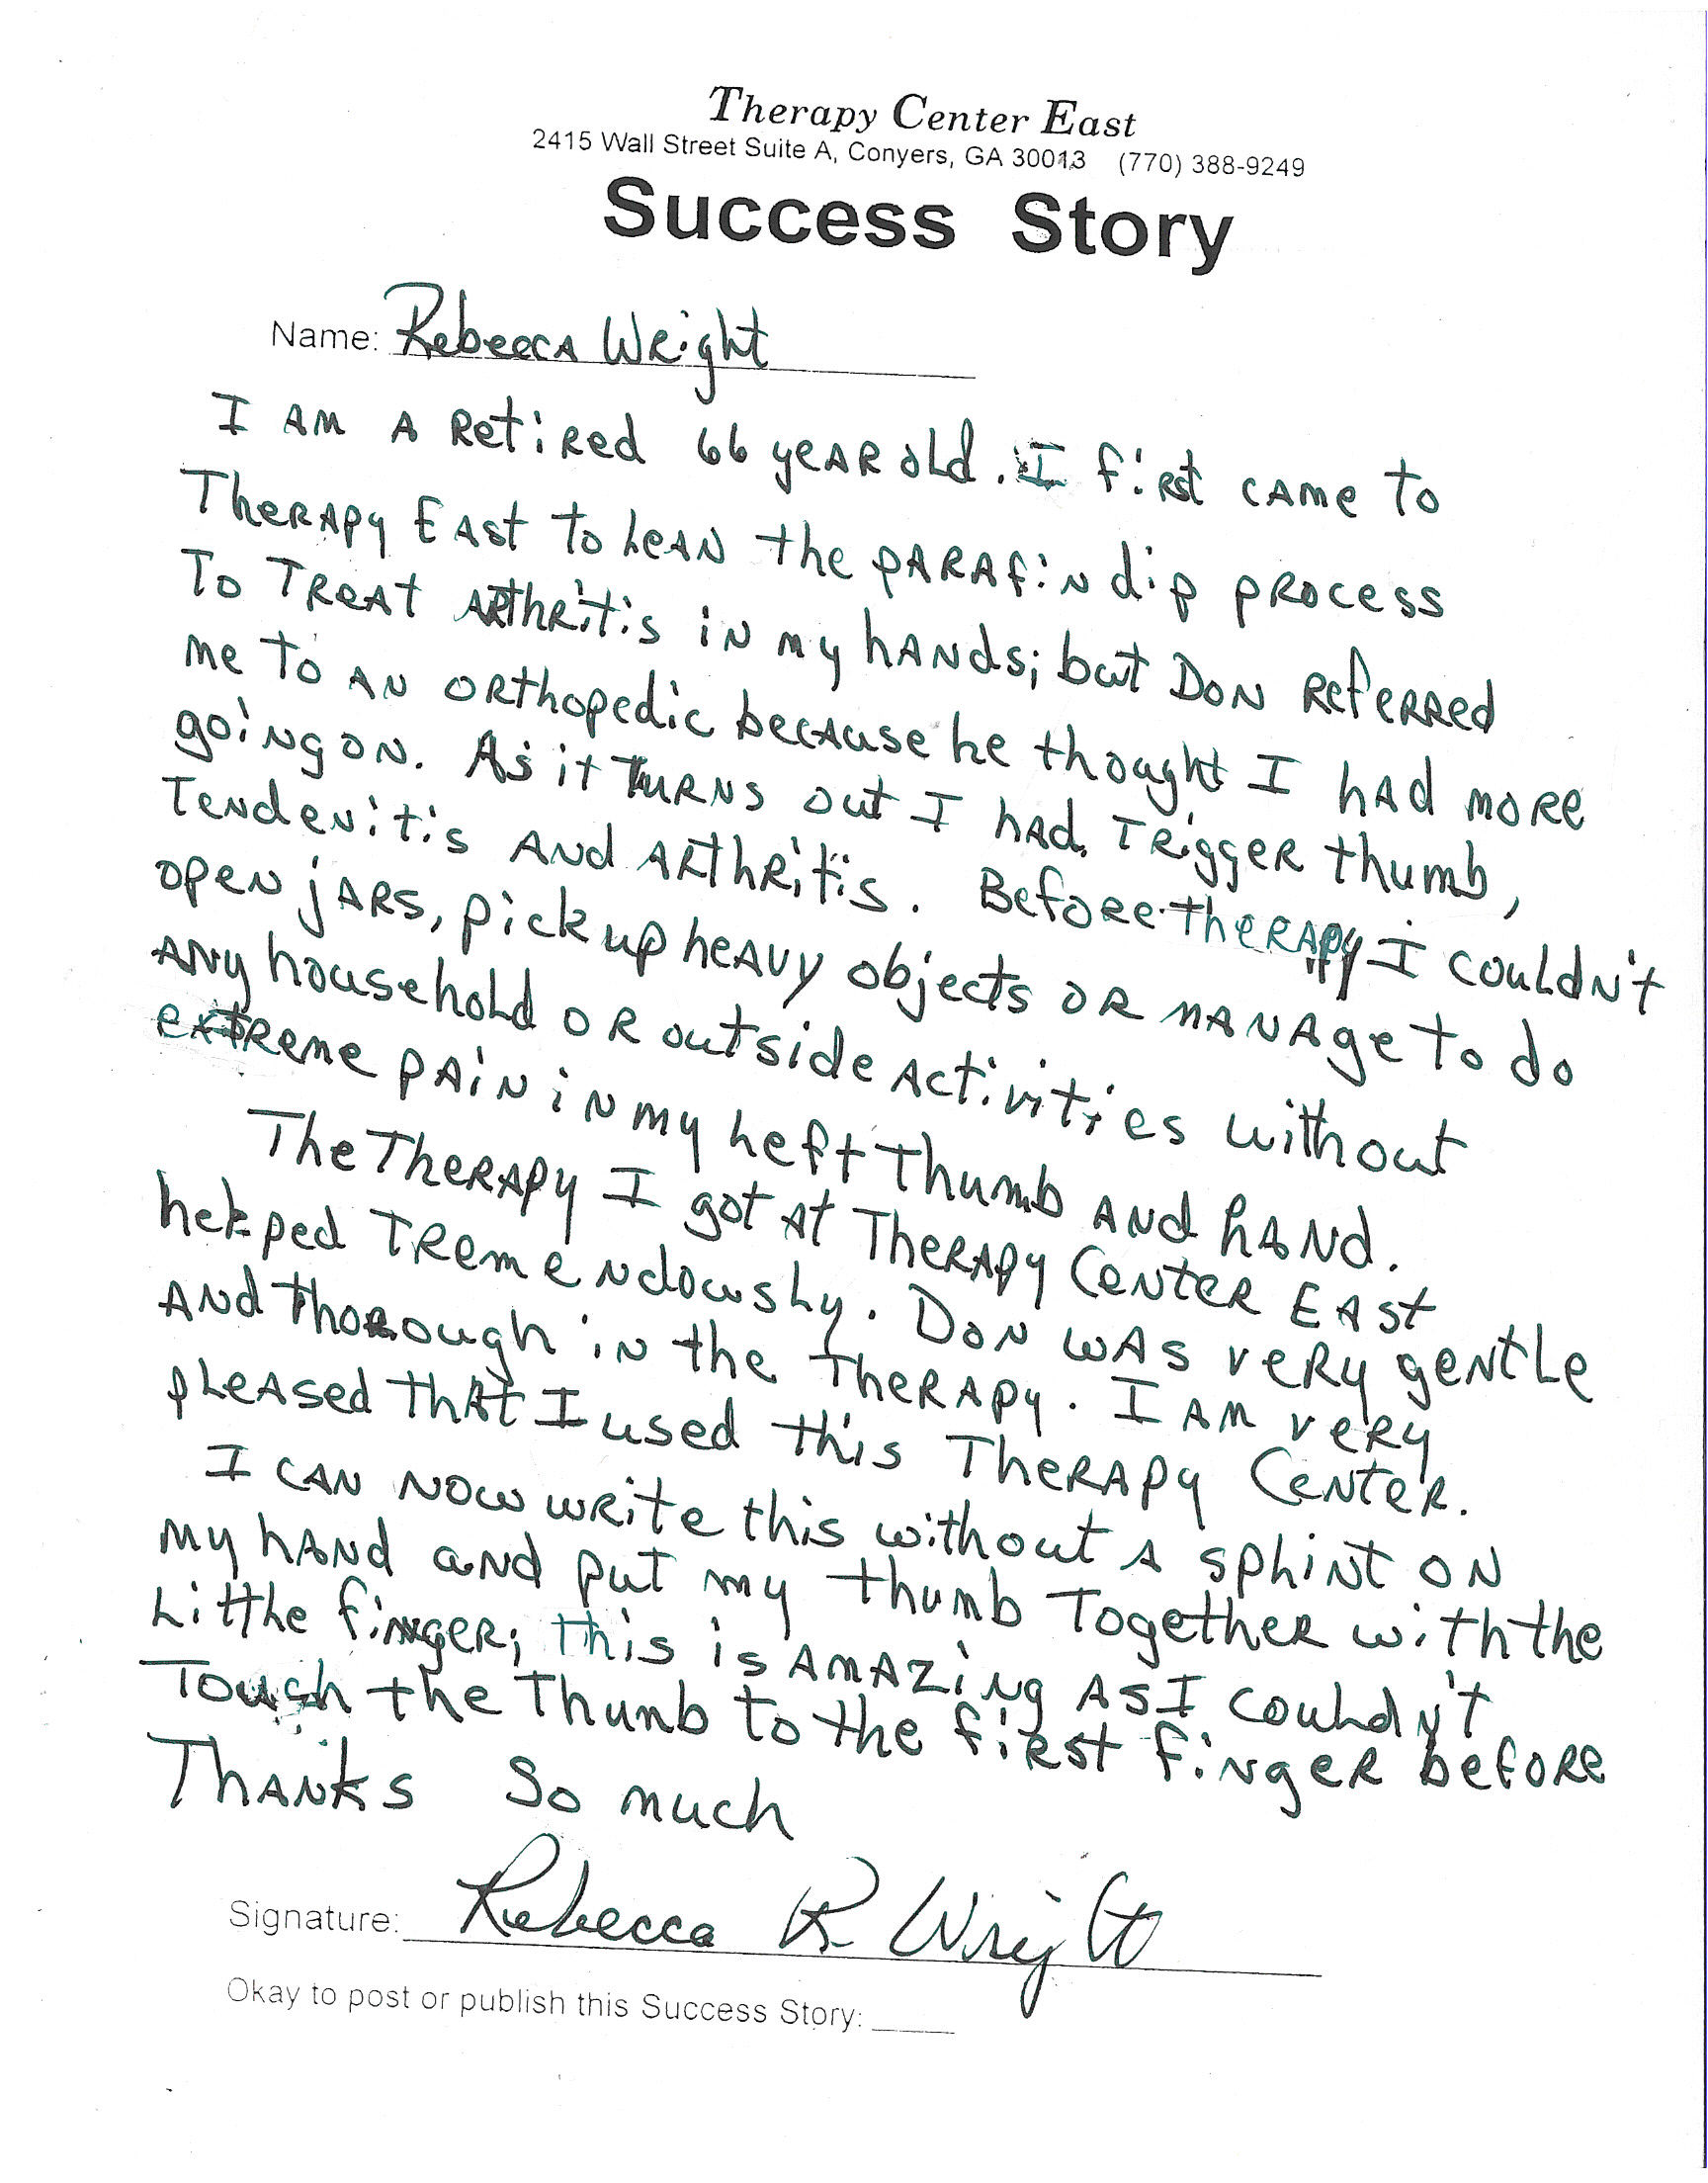 Therapy Center East
2415 Wall Street Suite A, Conyers, GA 30013 (770) 388-9249
Success Story
Name: Rebecca Wright
I am a retired 66 year old. I first came to
Therapy East to lean the parafin dip process
to treat arthritis in my hands; but Don referred
me to an orthopedic because he thought I had more
going on. As it turns out I had trigger thumb,
tendenitis and arthritis. Before therapy I couldn't
open jars, pick up heavy objects or manage to do
any household or outside activities without
extreme pain in my left thumb and hand.
The Therapy I got at Therapy Center East
helped tremendously. Don was very gentle
and thorough in the therapy. I am very
pleased that I used this Therapy Center.
I can now write this without a splint on
my hand and put my thumb together with the
little finger; this is amazing as I couldn't
touch the thumb to the first finger before
Thanks so much
Signature: Rebecca R Wright
Okay to post or publish this Success Story: